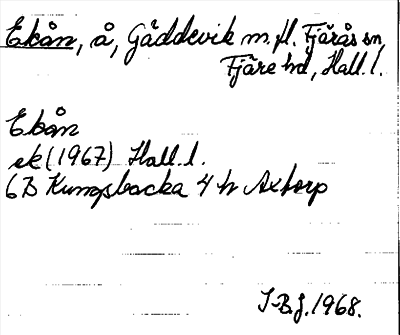 Ekån, å, Gäddevik m. fl. Fjärås sn
Fjäre hd, Hall. l.
Ekån
ek (1967) Hall. l.
6B Kungsbacka 4 h Axtorp
J-B.J. 1968.